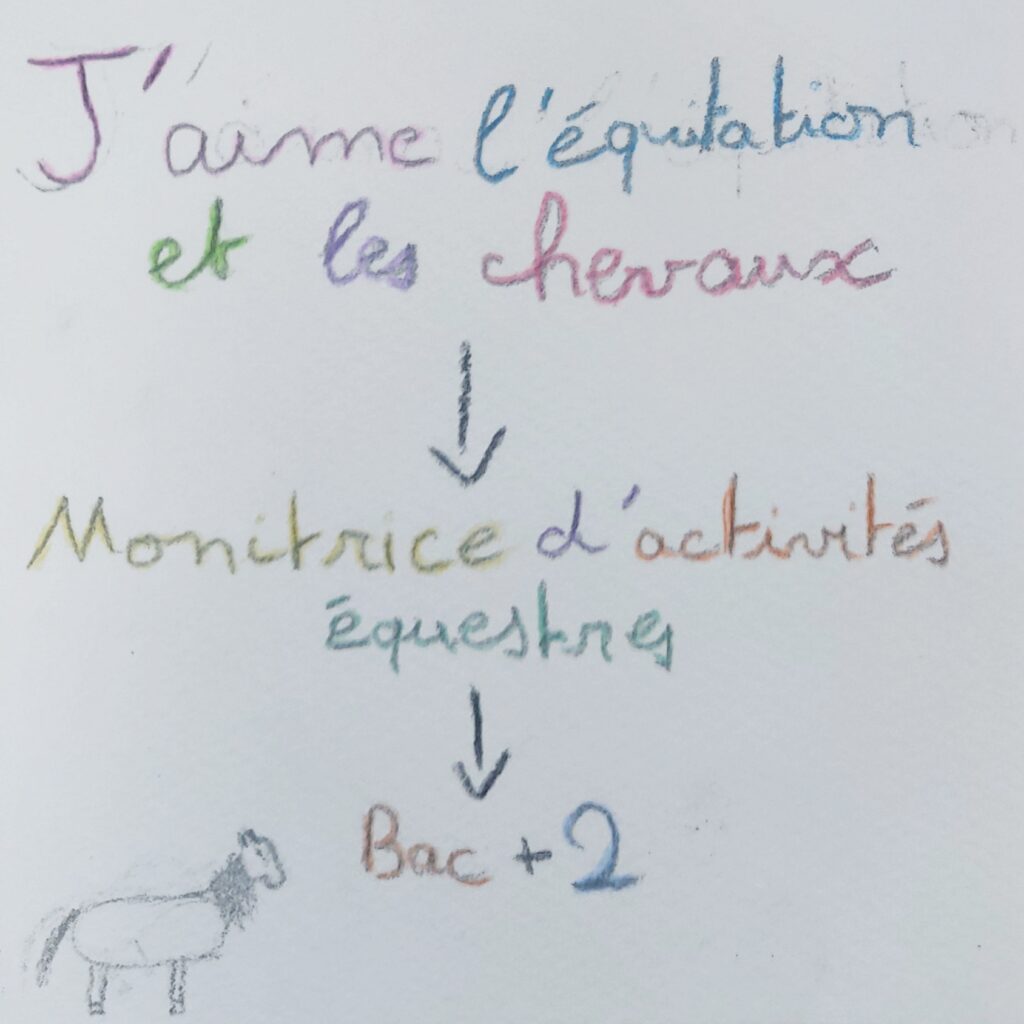 J'aime l'équitation
et les chevaux
Monitrice d'activités
équestres
Bac + 2